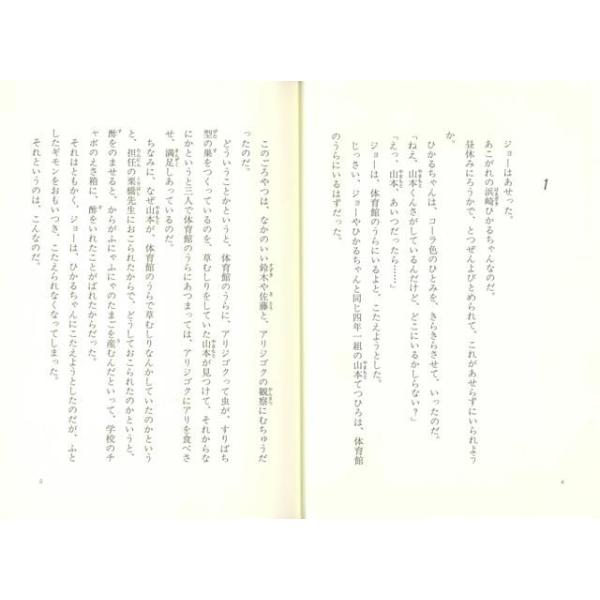 1
ジョーはあせった。
あこがれの浜崎ひかるちゃんなのだ。
昼休みにろうかで、とつぜんよびとめられて、これがあせらずにいられよう
か。
ひかるちゃんは、コーラ色のひとみを、きらきらさせて、いったのだ。
「ねえ、山本くんさがしているんだけど、どこにいるかしらない？」
「えっ、山本、あいつだったら……」
ジョーは、体育館のうらにいるよと、こたえようとした。
じっさい、ジョーやひかるちゃんと同じ四年一組の山本てつひろは、体育館
のうらにいるはずだった。
4
このごろやつは、なかのいい鈴木や佐藤と、アリジゴクの観察にむちゅうだ
ったのだ。
どういうことかというと、体育館のうらに、アリジゴクって虫が、すりばち
型の巣をつくっているのを、草むしりをしていた山本が見つけて、それからな
にかというと三人で体育館のうらにあつまっては、アリジゴクにアリを食べさ
せ、満足しあっているのだ。
ちなみに、なぜ山本が、体育館のうらで草むしりなんかしていたのかという
と、担任の栗橋先生におこられたからで、どうしておこられたのかというと、
酢をのませると、からがふにゃふにゃのたまごを産むんだといって、学校のチ
ャボのえさ箱に、酢をいれたことがばれたからだった。
それはともかく、ジョーは、ひかるちゃんにこたえようとしたのだが、ふと
したギモンをおもいつき、こたえられなくなってしまった。
それというのは、こんなのだ。
5